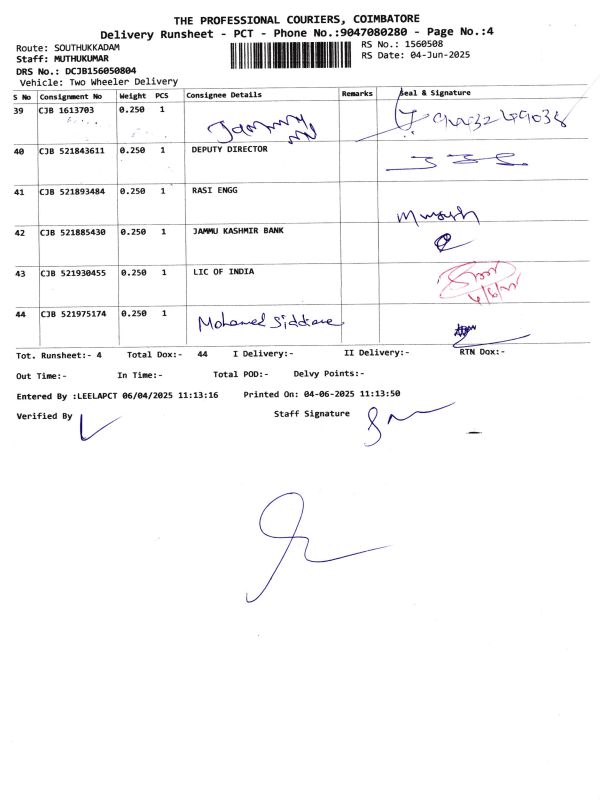 THE PROFESSIONAL COURIERS, COIMBATORE
Delivery Runsheet - PCT - Phone No.:9047080280 - Page No.:4
Route: SOUTHUKKADAM RS No.: 1560508
Staff: MUTHUKUMAR RS Date: 04-Jun-2025
DRS No.: DCJB156050804
Vehicle: Two Wheeler Delivery
S No Consignment No Weight PCS Consignee Details Remarks Seal & Signature
39 CJB 1613703 0.250 1
40 CJB 521843611 0.250 1 DEPUTY DIRECTOR
41 CJB 521893484 0.250 1 RASI ENGG
42 CJB 521885430 0.250 1 JAMMU KASHMIR BANK
43 CJB 521930455 0.250 1 LIC OF INDIA
44 CJB 521975174 0.250 1 Mohamed
Tot. Runsheet:- 4 Total Dox:- 44 I Delivery:- II Delivery:- RTN Dox:-
Out Time:- In Time:- Total POD:- Delvy Points:-
Entered By :LEELAPCT 06/04/2025 11:13:16 Printed On: 04-06-2025 11:13:50
Verified By Staff Signature